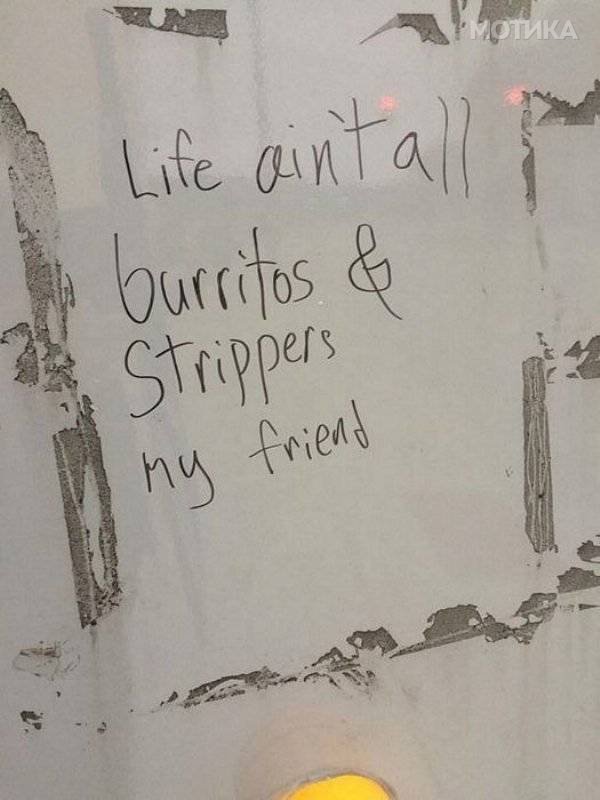 МОТИКА
Life ain't all
burritos &
Strippers
my friend